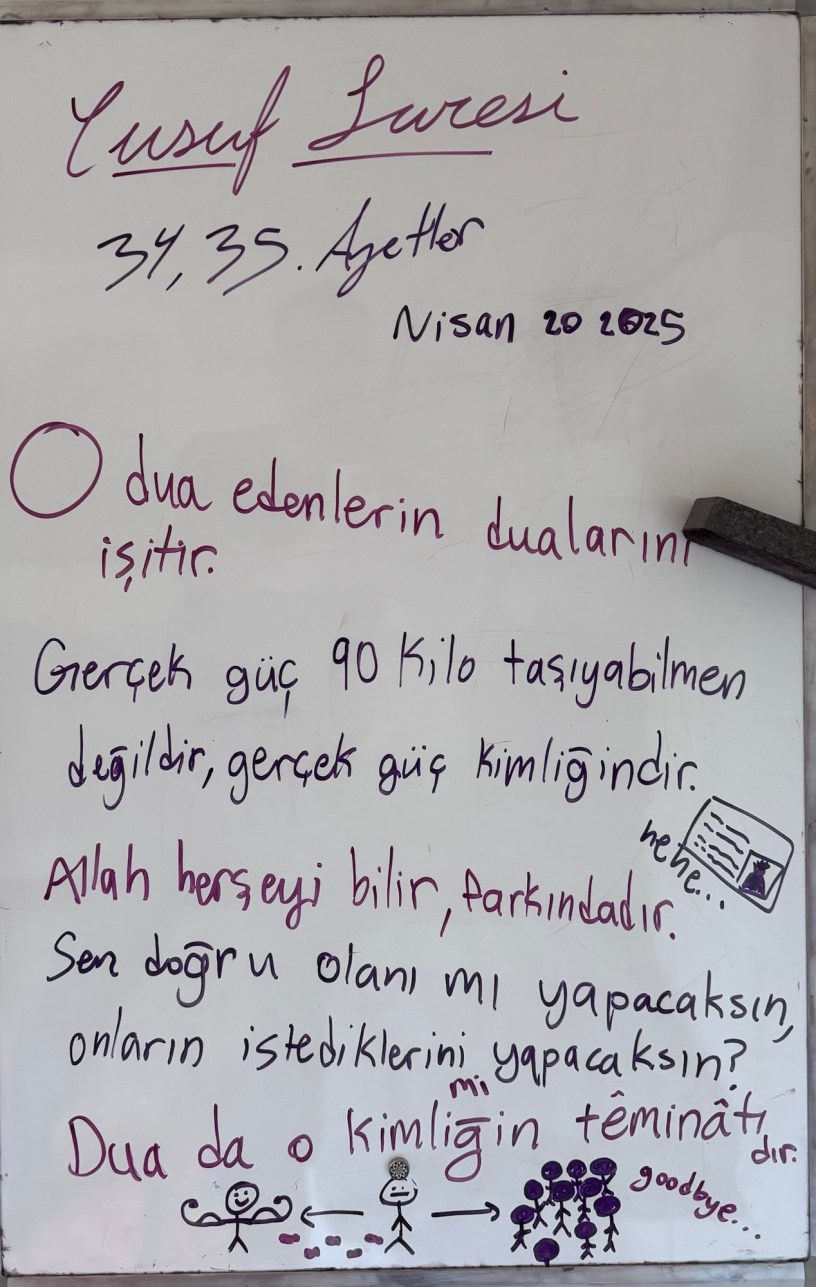 Yusuf Suresi
34, 35. Ayetler
Nisan 20 2025
O dua edenlerin dualarını
işitir.
Gerçek güç 90 Kilo taşıyabilmen
değildir, gerçek güç kimliğindir.
hehe...
Allah herşeyi bilir, farkındadır.
Sen doğru olanı mı yapacaksın,
onların istediklerini mi yapacaksın?
Dua da o kimliğin têminâtıdır.
goodbye...